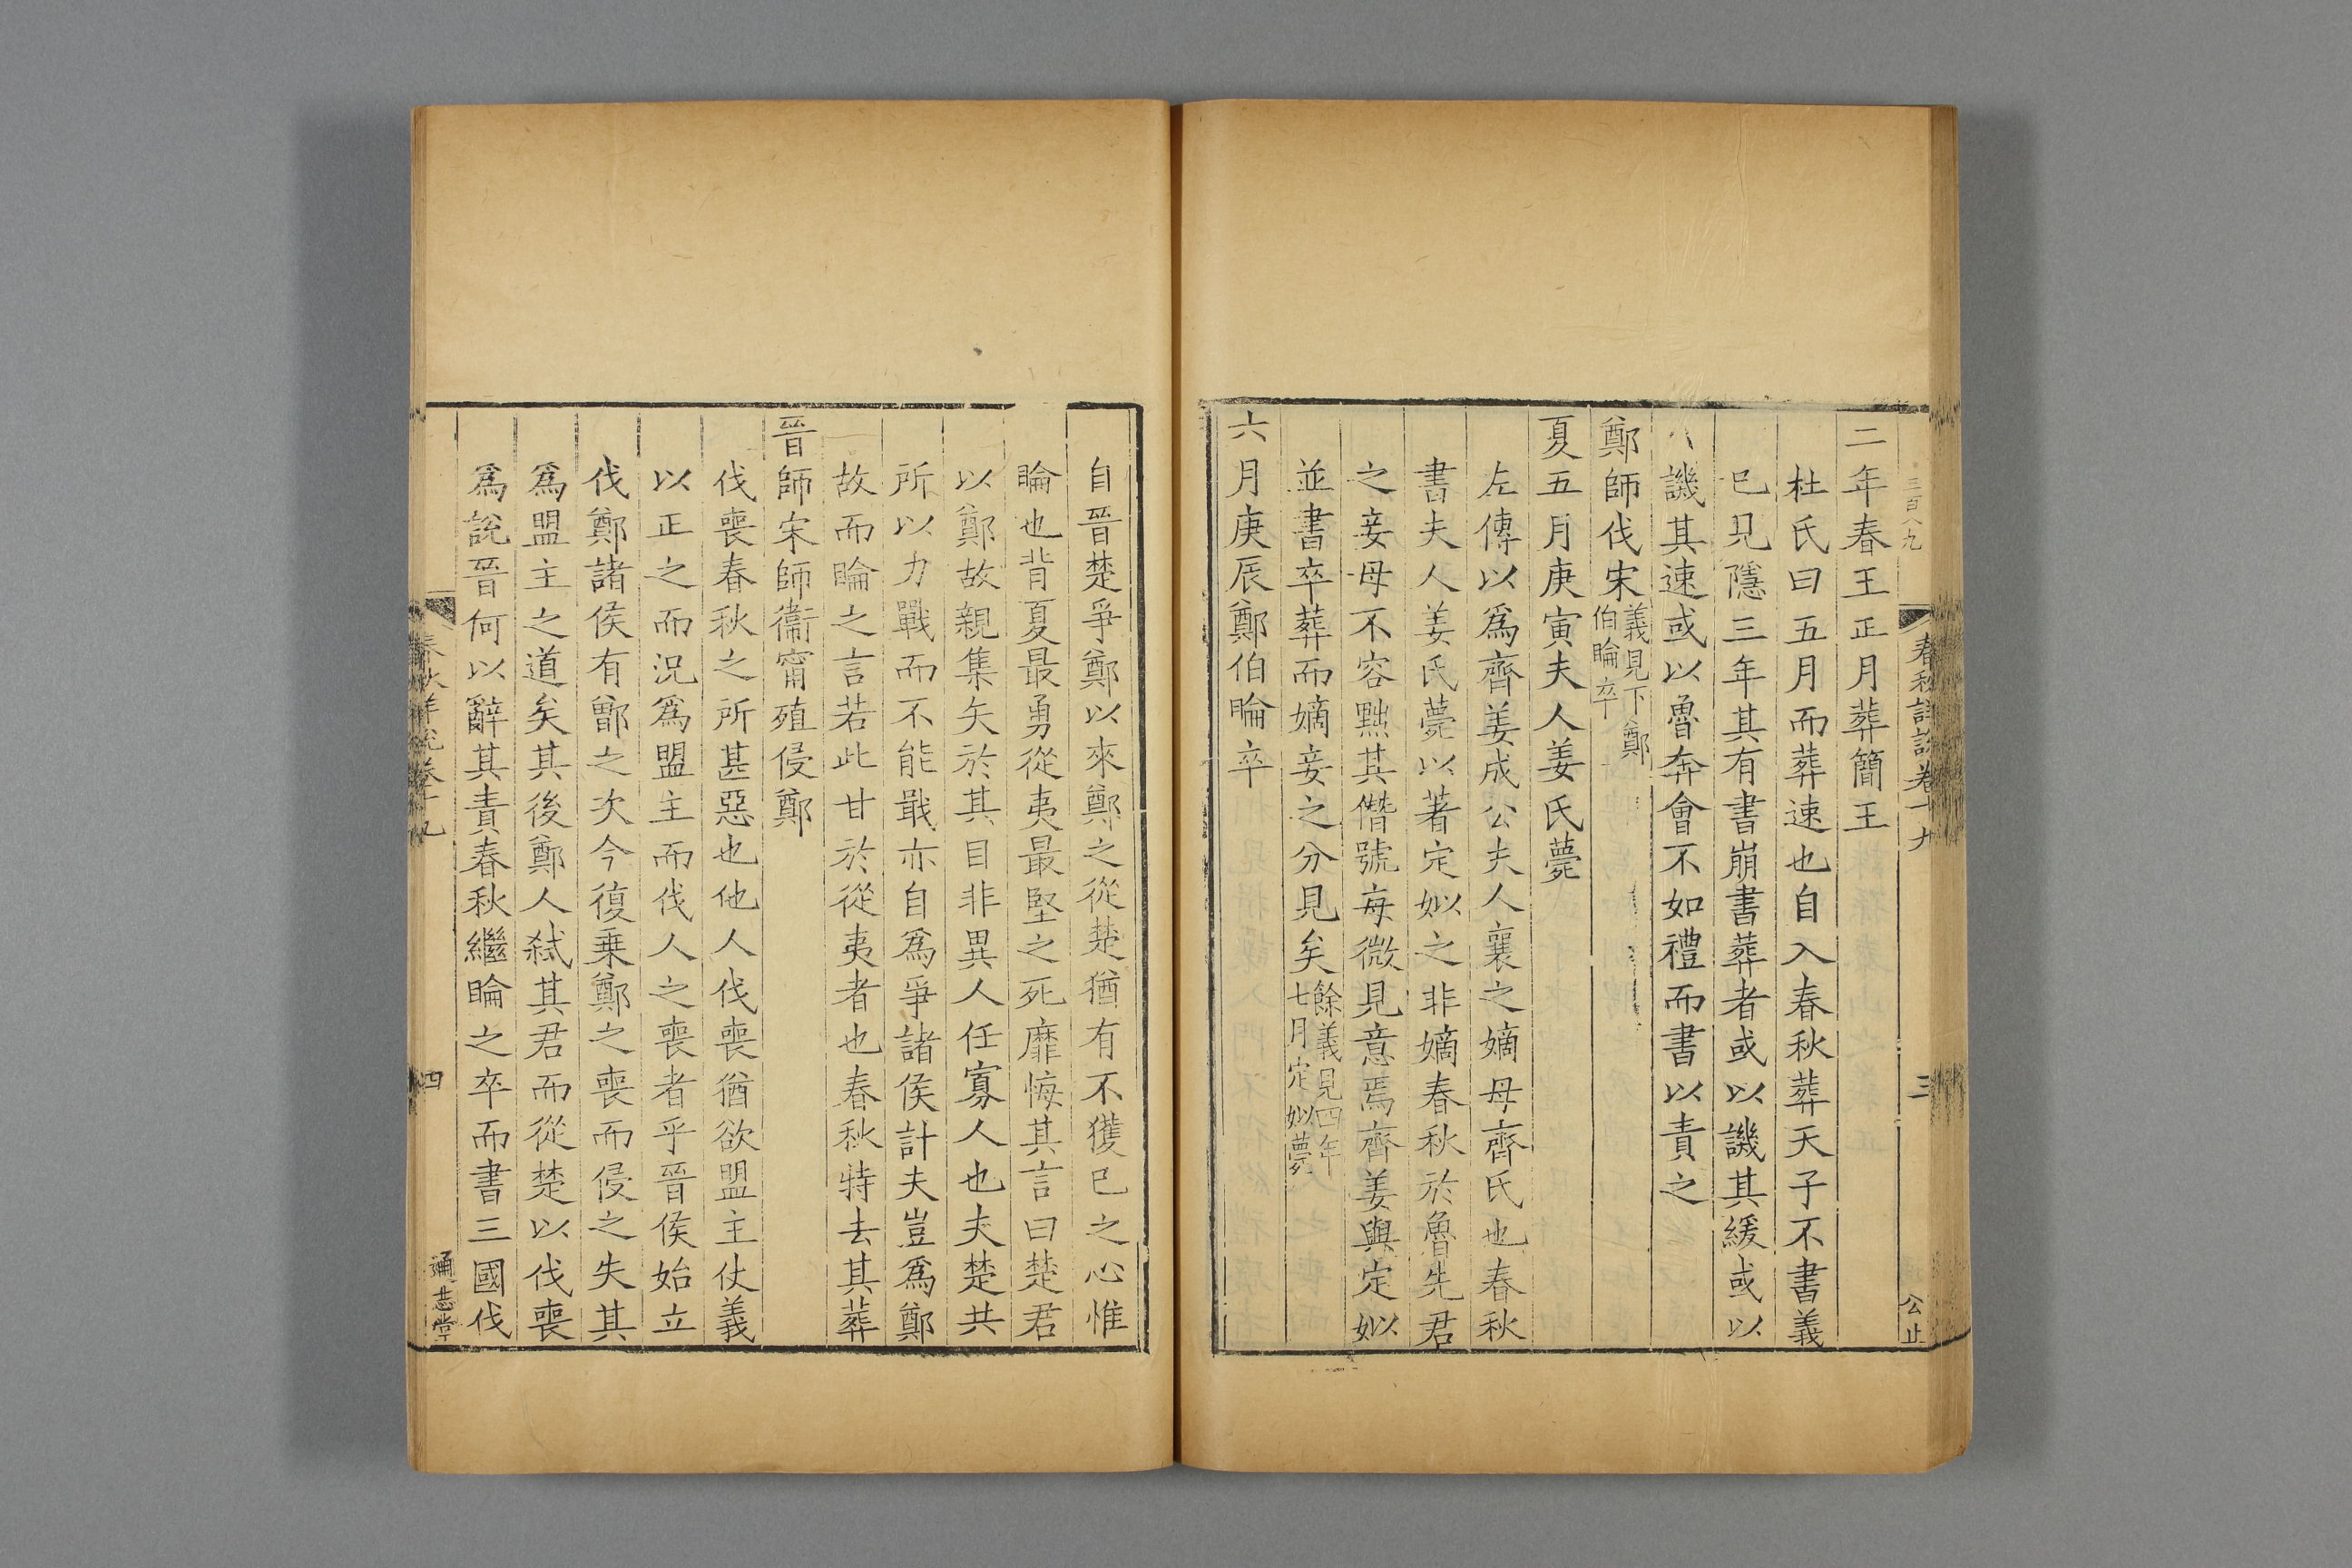 三百八九
春秋詳說卷十九
三
公止
二年春王正月葬簡王
杜氏曰五月而葬速也自入春秋葬天子不書義
已見隱三年其有書崩書葬者或以譏其緩或以
譏其速或以魯奔會不如禮而書以責之
鄭師伐宋義見下鄭
伯睔卒
夏五月庚寅夫人姜氏薨
左傳以為齊姜成公夫人襄之嫡母齊氏也春秋
書夫人姜氏薨以著定姒之非嫡春秋於魯先君
之妾母不容黜其僭號每微見意焉齊姜與定姒
並書卒葬而嫡妾之分見矣餘義見四年
七月定姒薨
六月庚辰鄭伯睔卒
自晉楚爭鄭以來鄭之從楚猶有不獲已之心惟
睔也背夏最勇從夷最堅之死靡悔其言曰楚君
以鄭故親集矢於其目非異人任寡人也夫楚共
所以力戰而不能戢亦自為爭諸侯計夫豈為鄭
故而睔之言若此甘於從夷者也春秋特去其葬
晉師宋師衞甯殖侵鄭
伐喪春秋之所甚惡也他人伐喪猶欲盟主仗義
以正之而況為盟主而伐人之喪者乎晉侯始立
伐鄭諸侯有鄫之次今復乗鄭之喪而侵之失其
為盟主之道矣其後鄭人弑其君而從楚以伐喪
為說晉何以辭其責春秋繼睔之卒而書三國伐
春秋詳說卷十九
四
通志堂